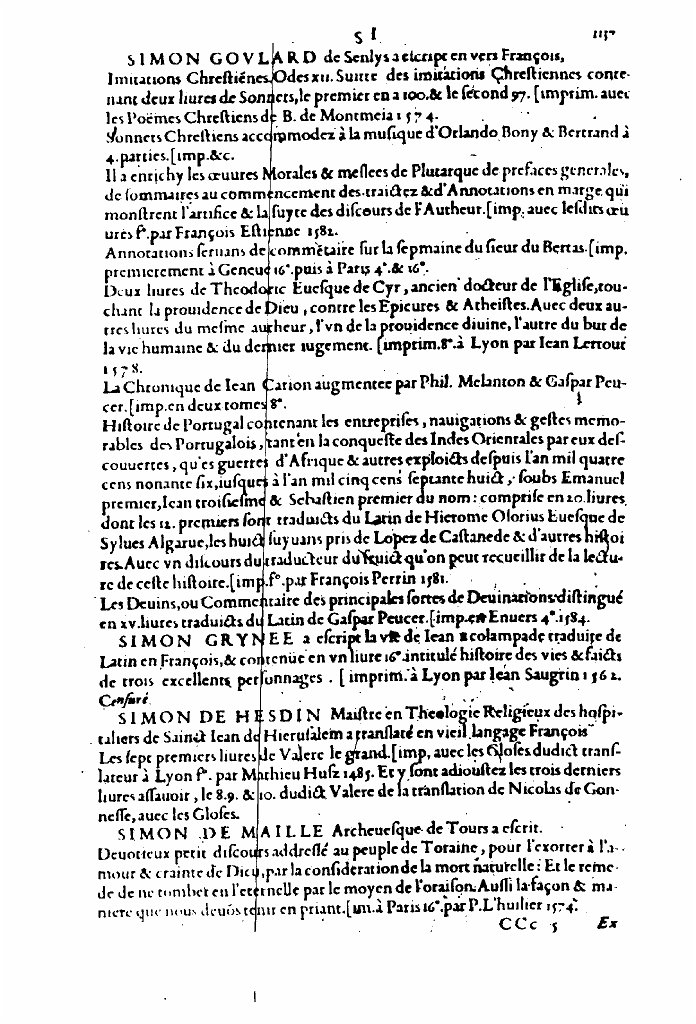 S I 1137
SIMON GOVLARD de Senlys a escript en vers François,
Imitations Chrestiénes Odes xii. Suitte des imitations Chrestiennes conte-
nant deux liures de Sonnets, le premier en a 100. & le second 97. [imprim. auec
les Poëmes Chrestiens de B. de Montmeia 1574.
Sonnets Chrestiens accommodez à la musique d'Orlando, Bony & Bertrand à
4. parties. [imp. &c.
Il a enrichy les œuures Morales & meslees de Plutarque de prefaces generales,
de sommaires au commencement des traictez & d'Annotations en marge qui
monstrent l'artifice & la suyte des discours de l'Autheur. [imp. auec lesdits œu
ures f°. par François Estienne 1582.
Annotations seruans de commētaire sur la sepmaine du sieur du Bertas. [imp.
premierement à Geneue 16°. puis à Paris 4°. & 16°.
Deux liures de Theodoric Euesque de Cyr, ancien docteur de l'Eglise, tou-
chant la prouidence de Dieu, contre les Epicures & Atheistes. Auec deux au-
tres liures du mesme autheur, l'vn de la prouidence diuine, l'autre du but de
la vie humaine & du dernier iugement. [imprim. 8°. à Lyon par Iean Lertout
1578.
La Chronique de Iean Carion augmentee par Phil. Melanton & Gaspar Peu-
cer. [imp. en deux tomes 8°.
Histoire de Portugal contenant les entreprises, nauigations & gestes memo-
rables des Portugalois, tant en la conqueste des Indes Orientales par eux des-
couuertes, qu'es guerres d'Afrique & autres exploicts despuis l'an mil quatre
cens nonante six, iusques à l'an mil cinq cens septante huict, soubs Emanuel
premier, Iean troisiesme & Sebastien premier du nom: comprise en 20. liures,
dont les 12. premiers sont traduicts du Latin de Hierome Osorius Euesque de
Sylues Algarue, les huict suyuans pris de Lopez de Castanede & d'autres histoi
res. Auec vn discours du traducteur du fruict qu'on peut recueillir de la lectu-
re de ceste histoire. [imp. f°. par François Perrin 1581.
Les Deuins, ou Commentaire des principales sortes de Deuinations: distingué
en xv. liures traduicts du Latin de Gaspar Peucer. [imp. en Enuers 4°. 1584.
SIMON GRYNEE a escript la vie de Iean Œcolampade traduite de
Latin en François, & contenuë en vn liure 16°. intitulé histoire des vies & faicts
de trois excellents personnages. [imprim. à Lyon par Iean Saugrin 1562.
Censuré
SIMON DE HESDIN Maistre en Theologie Religieux des hospi-
taliers de Sainct Iean de Hierusalem a translaté en vieil langage François
Les sept premiers liures de Valere le grand. [imp. auec les Gloses dudict trans-
lateur à Lyon f°. par Mathieu Husz 1485. Et y sont adioustez les trois derniers
liures assauoir, le 8. 9. & 10. dudict Valere de la translation de Nicolas de Gon-
nesse, auec les Gloses.
SIMON DE MAILLE Archeuesque de Tours a escrit.
Deuotieux petit discours addressé au peuple de Toraine, pour l'exorter à l'a-
mour & crainte de Dieu, par la consideration de la mort naturelle: Et le reme-
de de ne tomber en l'eternelle par le moyen de l'oraison. Aussi la façon & ma-
niere que nous deuōs tenir en priant. [im. à Paris 16°. par P. L'huilier 1574.
CCc 5 Ex